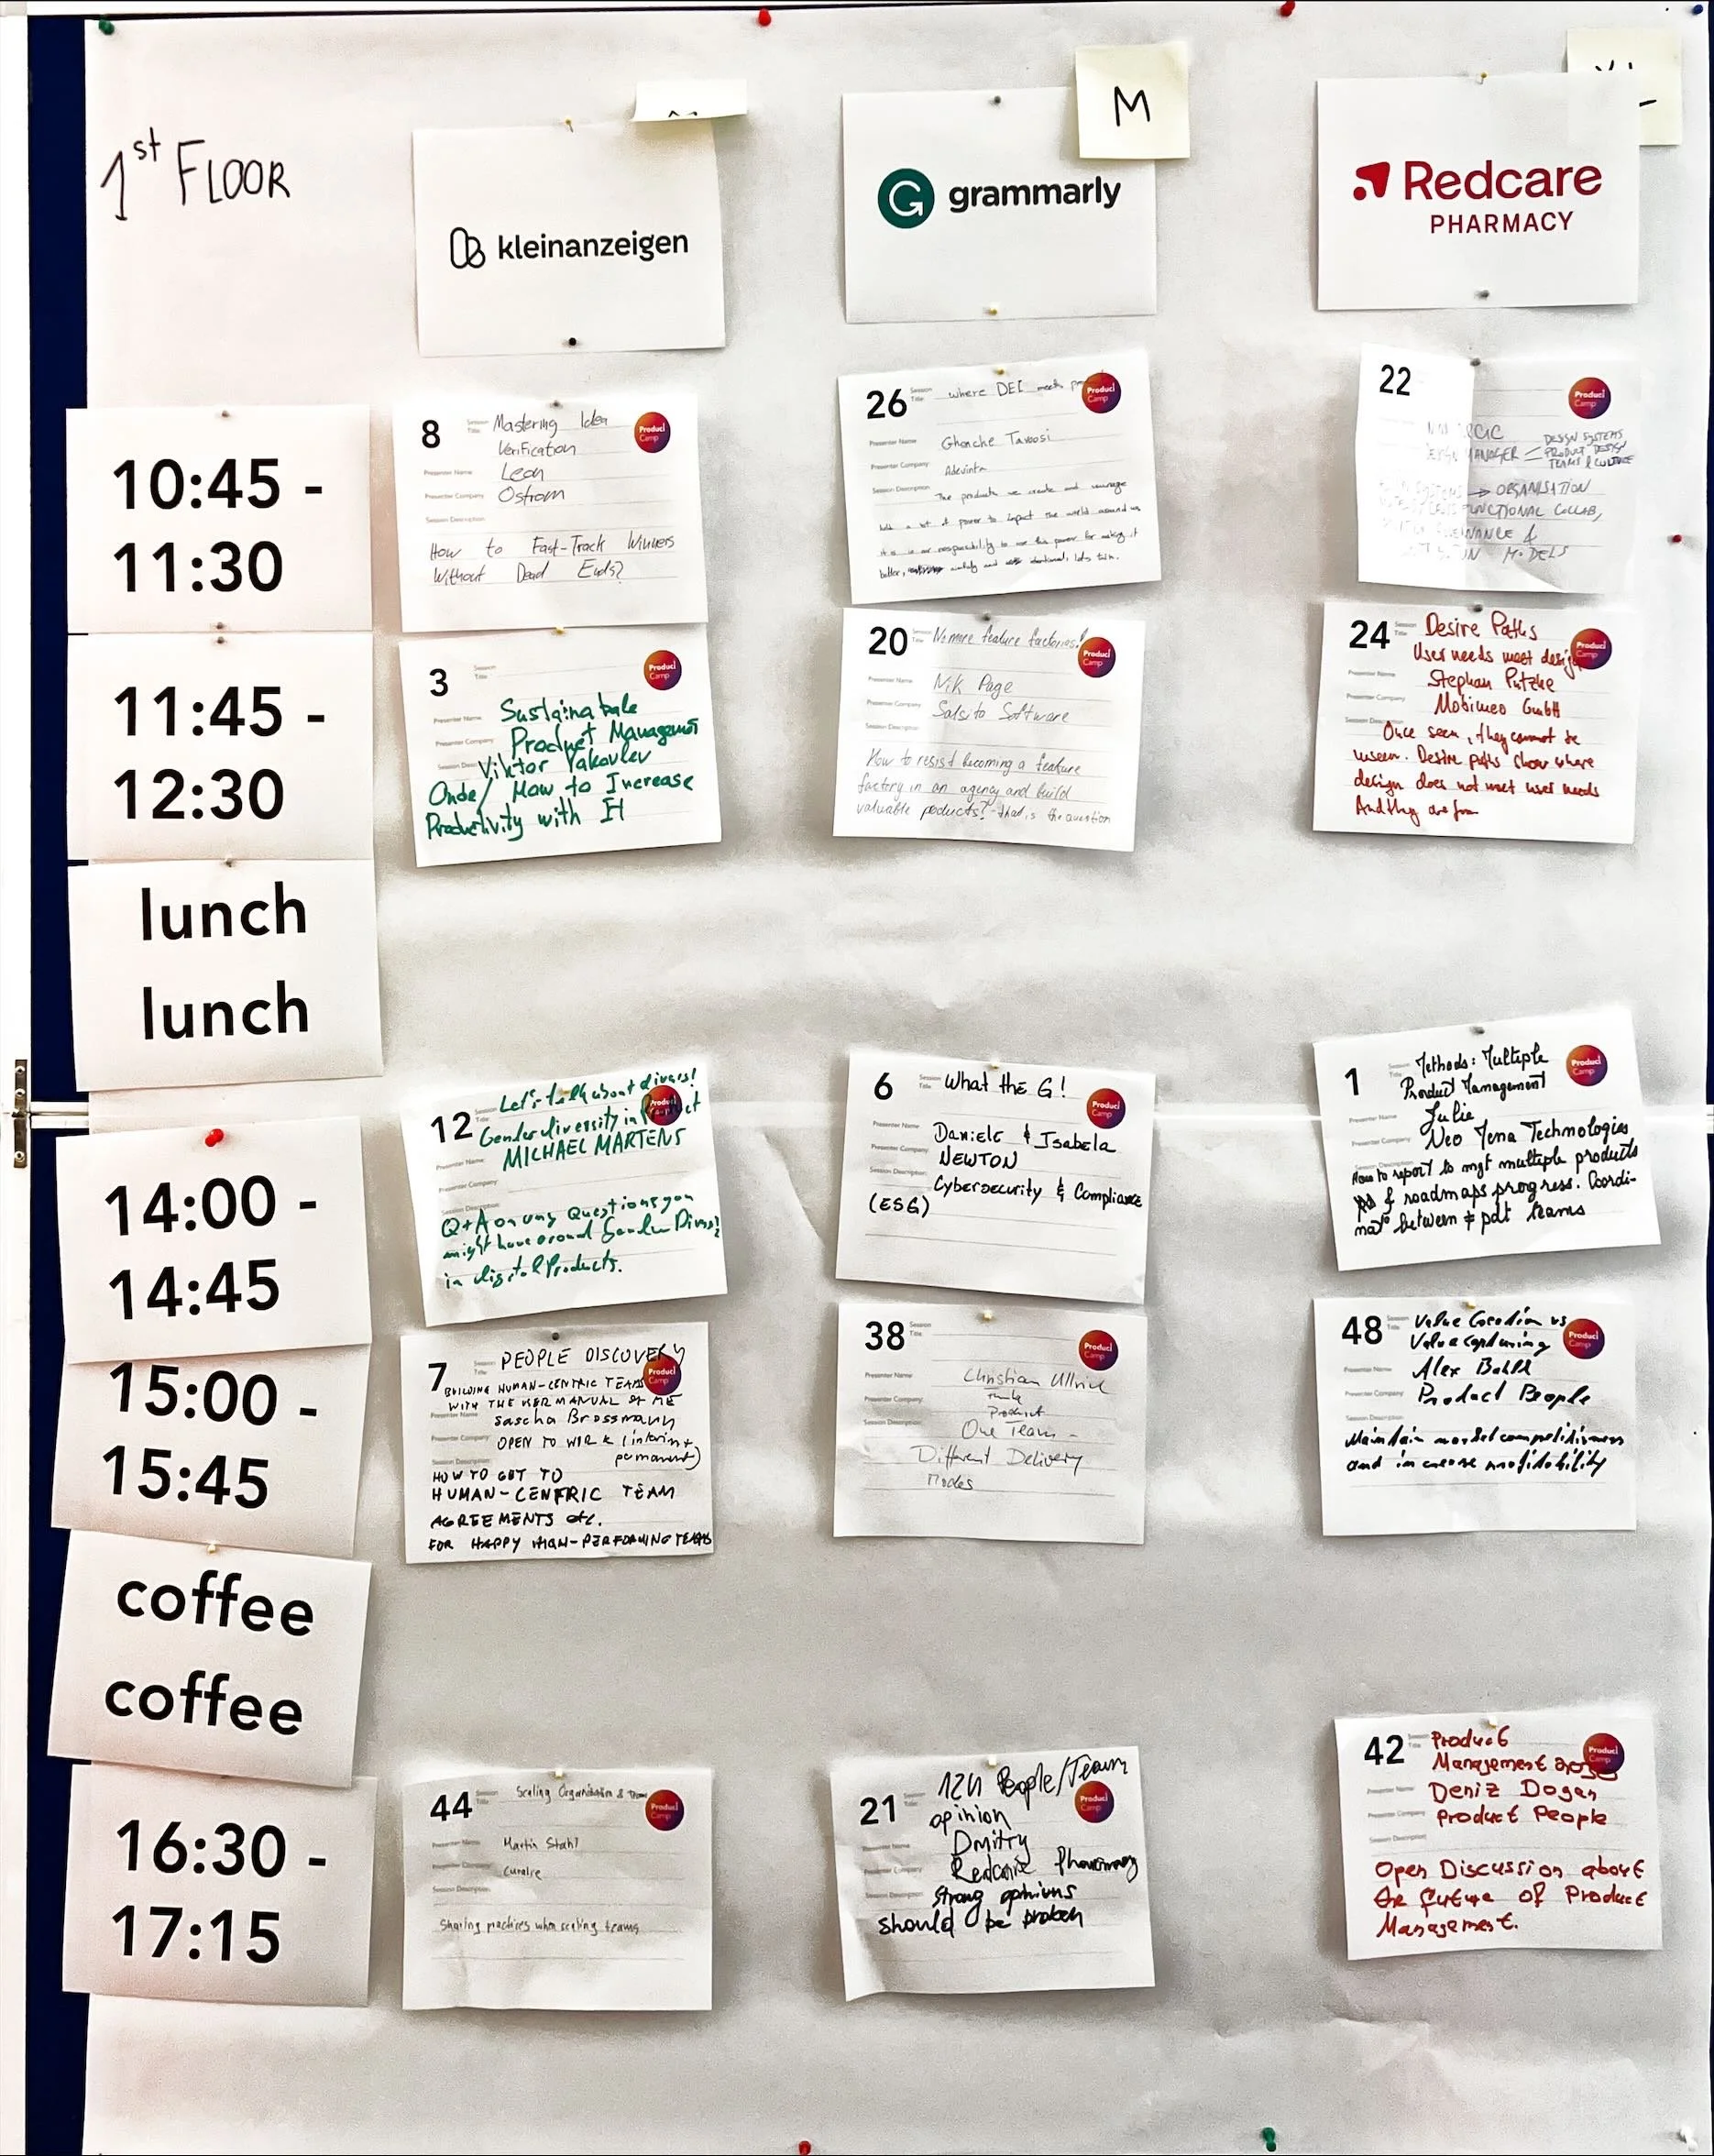 1st FLOOR
kleinanzeigen
M
grammarly
Redcare
PHARMACY
10:45 -
11:30
8
Session Title
Mastering Idea
Verification
Presenter Name
Leon
Presenter Company
Ostrom
Session Description
How to Fast-Track Winners
Without Dead Ends?
Product Camp
26
Session Title
where DEI meets
Presenter Name
Ghonche Tavoosi
Presenter Company
Adevinta
Session Description
The products we create and manage
hold a lot of power to impact the world around us,
it is our responsibility to use this power for making it
better,
Product Camp
22
DESIGN SYSTEMS
PRODUCT DESIGN
TEAMS & CULTURE
→ ORGANISATION
FUNCTIONAL COLLAB,
&
MODELS
Product Camp
11:45 -
12:30
3
Session Title
Sustainable
Presenter Name
Product Management
Presenter Company
Viktor Yakovlev
Onde/ How to Increase
Productivity with
Product Camp
20
Session Title
No more feature factories!
Presenter Name
Nik Page
Presenter Company
Salsita Software
Session Description
How to resist becoming a feature
factory in an agency and build
valuable products? - that is the question
Product Camp
24
Session Title
Desire Paths
User needs meet design
Presenter Name
Stephan Putzke
Presenter Company
Motimeo GmbH
Session Description
Once seen, they cannot be
unseen. Desire paths show where
design does not meet user needs
And they are fun
Product Camp
lunch
lunch
14:00 -
14:45
12
Session Title
Let's talk about divers!
Gender diversity in Product
Presenter Name
MICHAEL MARTENS
Presenter Company
Session Description
Q+A on any Questions you
might have around Gender Divers?
in digital Products.
6
Session Title
What the G!
Presenter Name
Daniele & Isabela
Presenter Company
NEWTON
Session Description
Cybersecurity & Compliance
(ESG)
Product Camp
1
Session Title
Methods: Multiple
Product Management
Presenter Name
Julie
Presenter Company
Neo Jena Technologies
How to report to mgt multiple products
& roadmaps progress. Coordi-
nat° between ≠ pdt teams
Product Camp
15:00 -
15:45
7
Session Title
PEOPLE DISCOVERY
BUILDING HUMAN-CENTRIC TEAMS
WITH THE USER MANUAL OF ME
Presenter Name
Sascha Brossmann
Presenter Company
OPEN TO WORK (interim +
permanent)
Session Description
HOW TO GET TO
HUMAN-CENTRIC TEAM
AGREEMENTS etc.
FOR HAPPY HIGH-PERFORMING TEAMS
Product Camp
38
Session Title
Presenter Name
Christian Ullrich
Presenter Company
Product
Session Description
One Team -
Different Delivery
Modes
Product Camp
48
Session Title
Value Creation vs
Value capturing
Presenter Name
Alex
Presenter Company
Product People
Session Description
Maintain market competitiveness
and increase profitability
Product Camp
coffee
coffee
16:30 -
17:15
44
Session Title
Scaling Organization & Teams
Presenter Name
Martin Stahl
Presenter Company
Session Description
Sharing practices when scaling teams
Product Camp
21
Session Title
121 People/Team
opinion
Presenter Name
Dmitry
Presenter Company
Redcare Pharmacy
Session Description
Strong opinions
should be broken
Product Camp
42
Session Title
Product
Management 2030
Presenter Name
Deniz Dogan
Presenter Company
Product People
Session Description
Open Discussion about
the future of Product
Management.
Product Camp